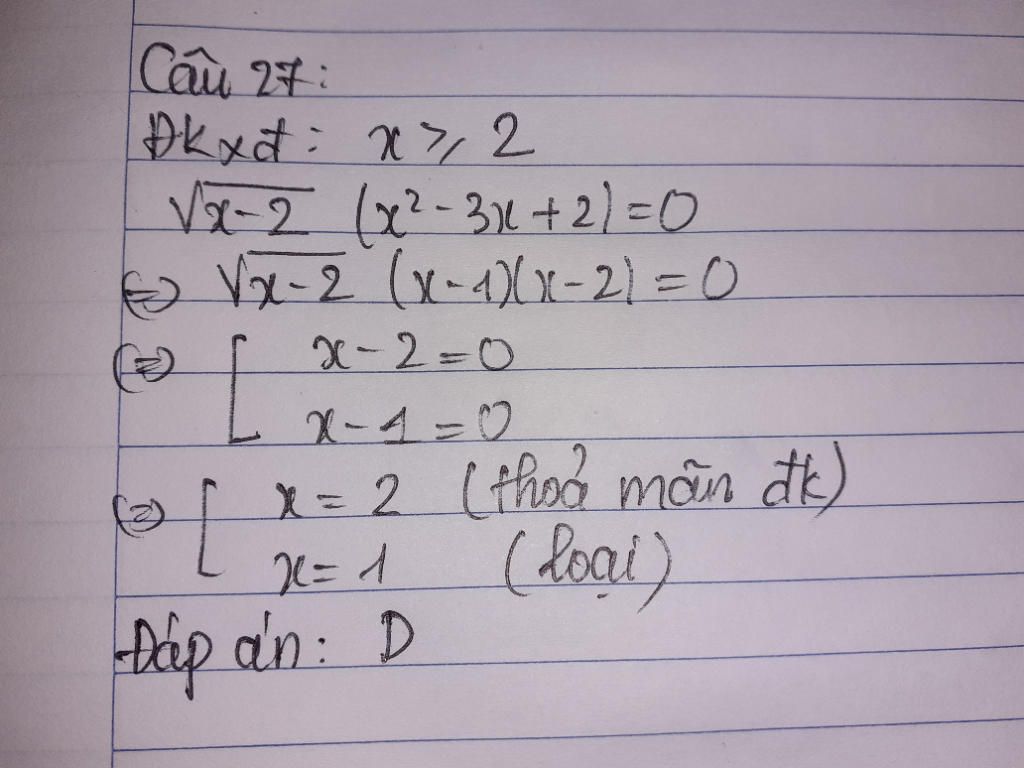 Câu 27:
Đkxđ: x ≥ 2
√x-2 (x² - 3x + 2) = 0
⇔ √x-2 (x-1)(x-2) = 0
⇔ [ x - 2 = 0
x - 1 = 0
⇔ [ x = 2 (thoả mãn đk)
x = 1 (loại)
Đáp án: D